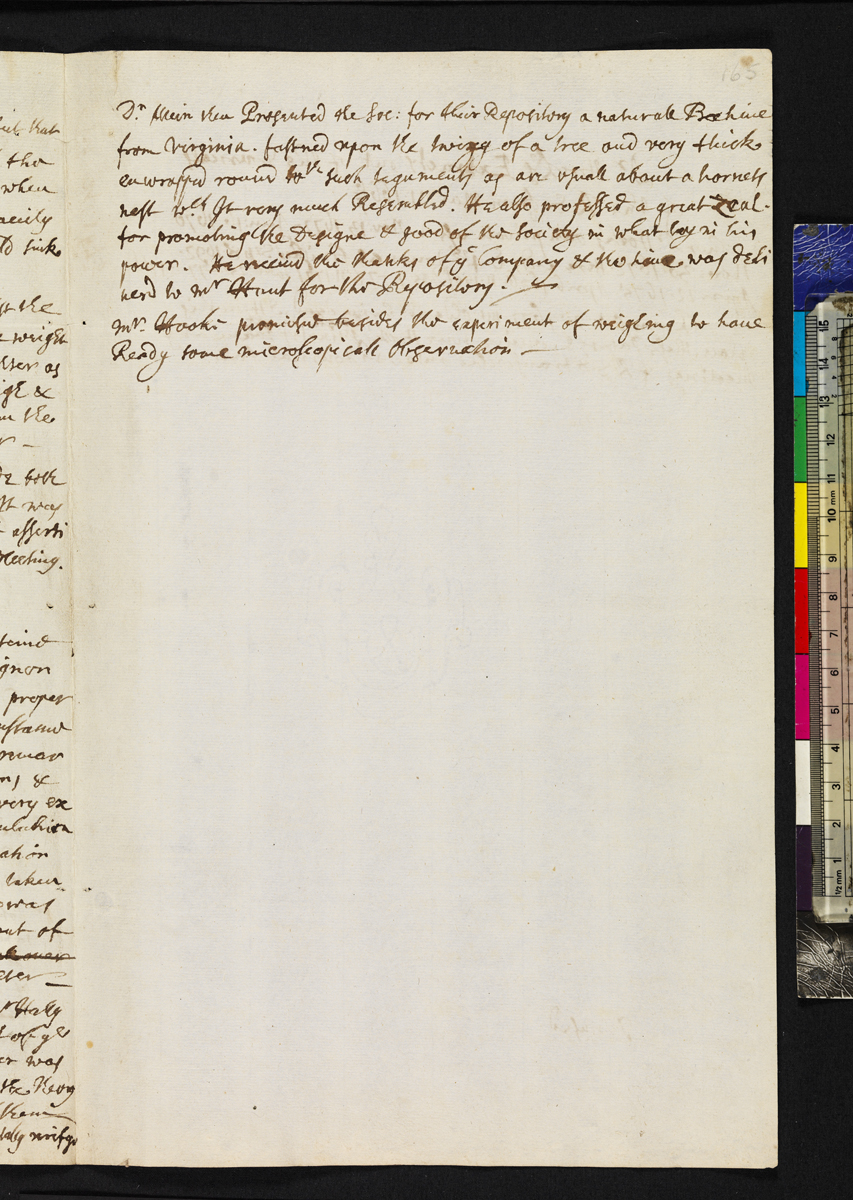 165
Dr Allein then Presented the Soc: for their Repository a naturall Beehive
from Virginia. fastned upon the twigg of a tree and very thick
enwrapped round wth such teguments as are usuall about a hornets
nest wch It very much Resembled. He also professed a great Zeal
for promoting the Designe & good of the Society in what lay in his
power. He receiud the thanks of ye Company & the hiue was deli
uerd to mr Hunt for the Repository.
mr. Hooke promised besides the experiment of weighing to haue
Ready some microscopicall Observation
that
the
when
sink
the
weight
as
&
the
both
It was
asserti
Meeting.
proper
&
very ex
ation
taken
was
out of
Hally
of ye
was
the
them